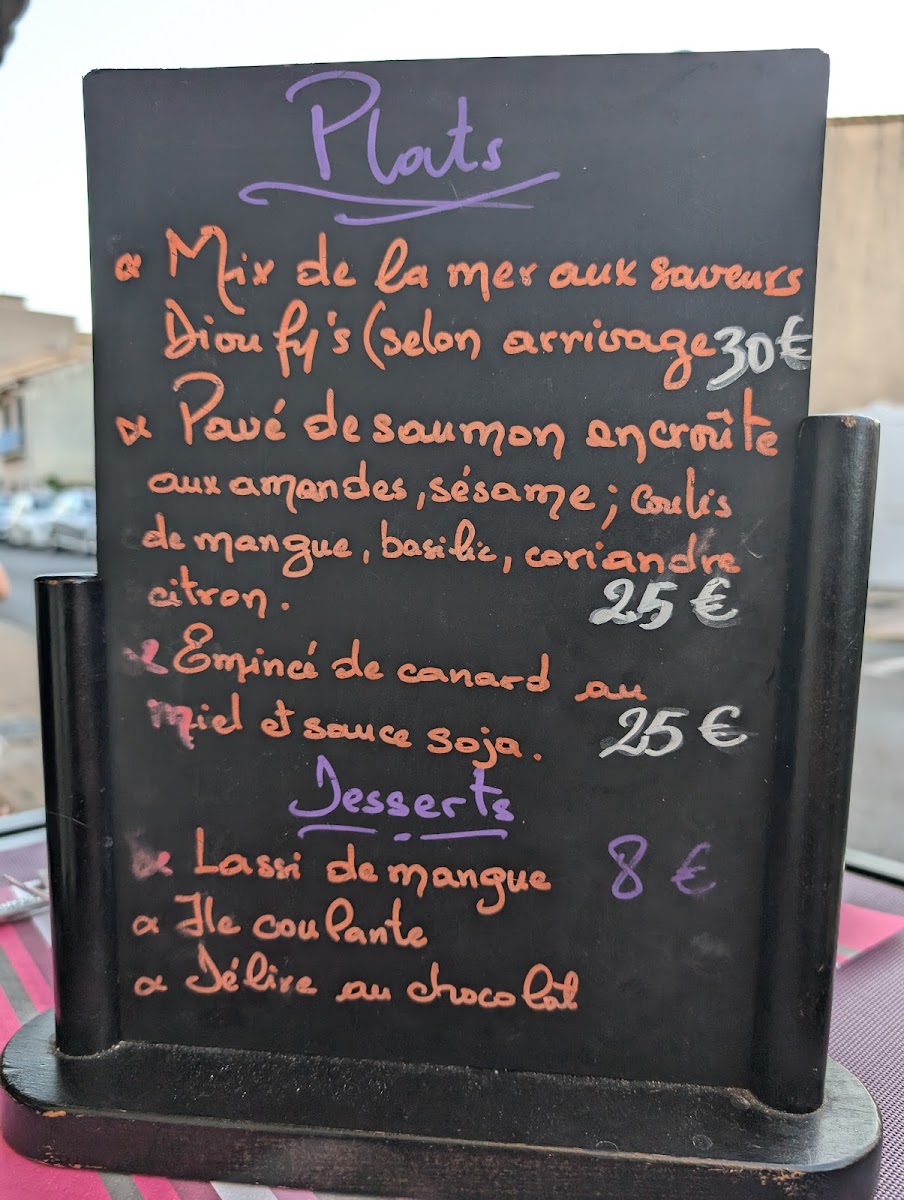 Plats
Mix de la mer aux saveurs
Dioufy's (selon arrivage 30€
Pavé de saumon encroûte
aux amandes, sésame; Coulis
de mangue, basilic, coriandre
citron. 25 €
Emincé de canard au
miel et sauce soja. 25 €
Desserts
Lassi de mangue 8 €
Ile coulante
Délire au chocolat